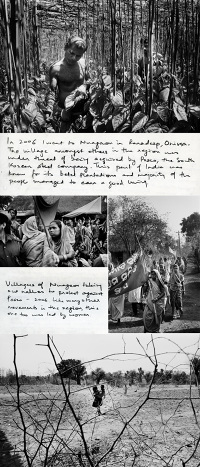 In 2006 I went to Nuagaon in Erasama, Orissa.
The village amongst others in the region was
under threat of being acquired by Posco, the South
Korean steel company. This part of India was
known for its betel plantations and majority of the
people managed to earn a good living
Villagers of Nuagaon taking
out rallies to protest against
Posco - 2006. Like many other
movements in the region this
one too was led by women